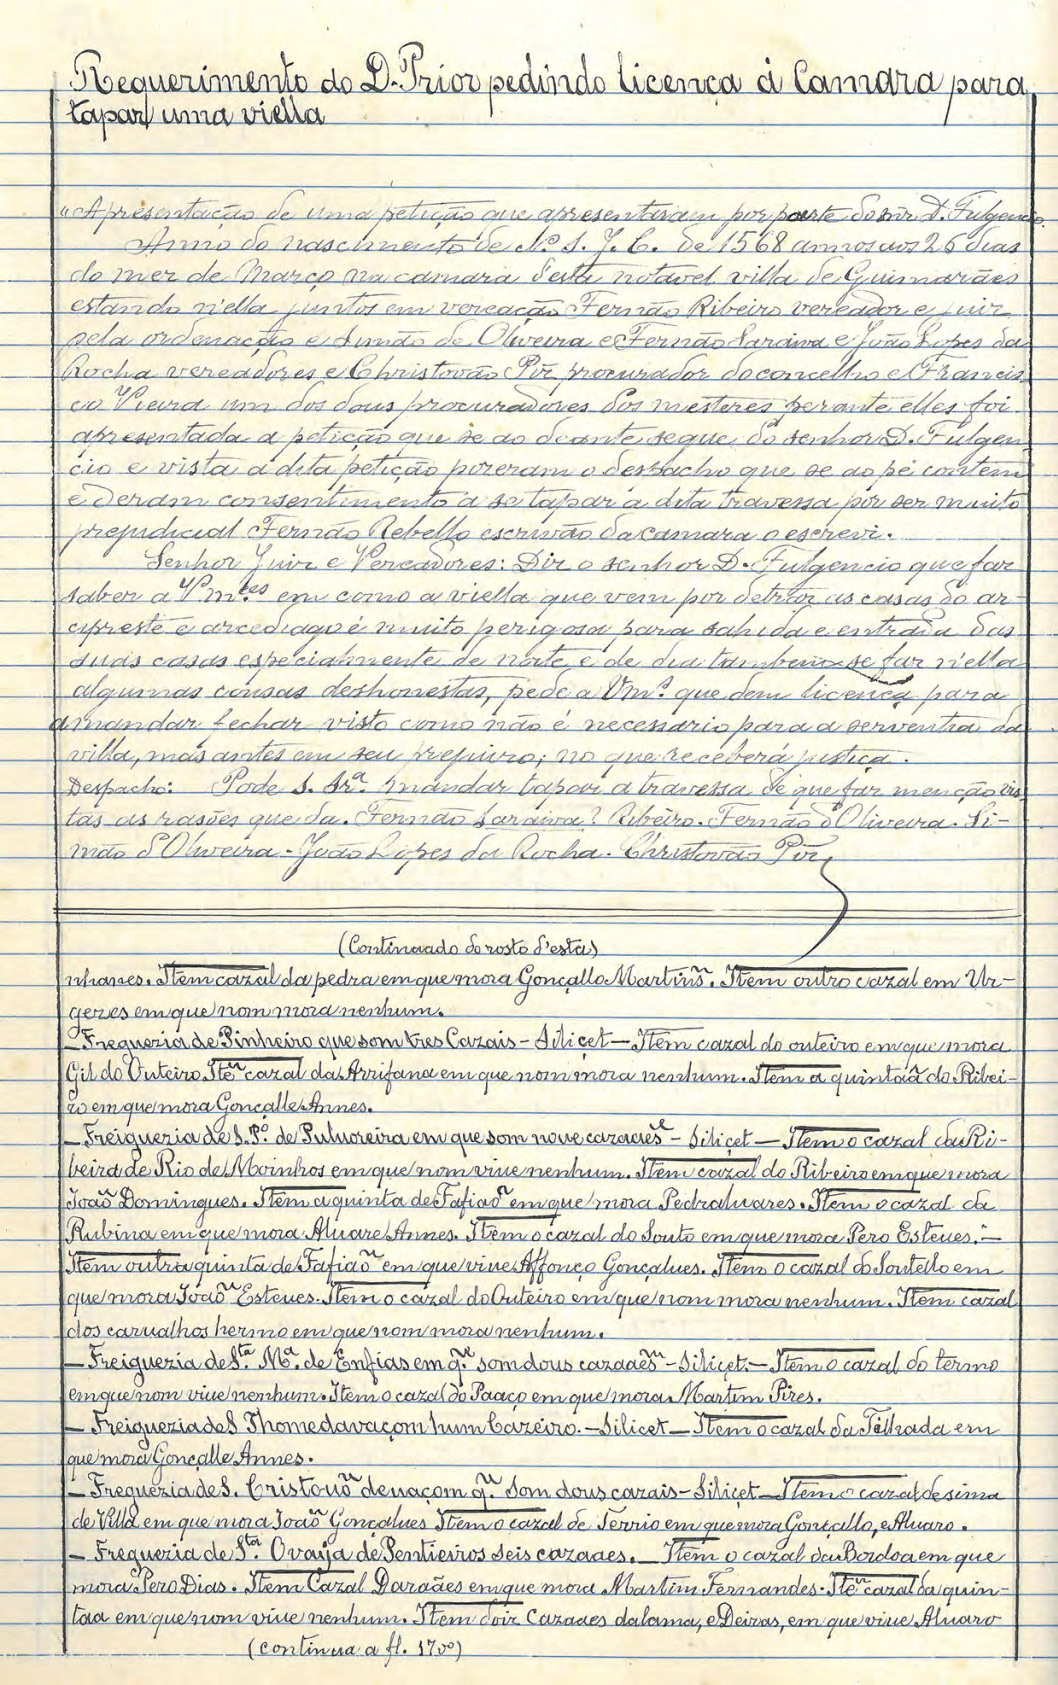 Requerimento do D. Prior pedindo licença á Camara para
tapar uma viella
"Apresentação de uma petição que apresentaram por parte do snr D. Fulgencio.
Anno do nascimento de N.º S. J. C. de 1568 annos aos 26 dias
do mez de Março na camara d'esta notavel villa de Guimarães
estando n'ella juntos em vereação Fernão Ribeiro vereador e juiz
pela ordenação e Simão de Oliveira e Fernão Saraiva e João Lopes da
Rocha vereadores e Christovão Piz procurador do concelho e Francis-
co Vieira um dos dous procuradores dos mesteres perante elles foi
apresentada a petição que se ao deante segue do senhor D. Fulgen-
cio e vista a dita petição pozeram o despacho que se ao pé contem
e deram consentimento a se tapar a dita travessa por ser muito
prejudicial Fernão Rebello escrivão da camara o escrevi.
Senhor Juiz e Vereadores: Diz o senhor D. Fulgencio que faz
saber a Vm.ces em como a viella que vem por detraz as casas do ar-
cipreste e arcediago é muito perigosa para sahida e entrada das
suas casas especialmente de noite, e de dia tambem se faz n'ella
algumas cousas deshonestas, pede a Vm.s que dem licença para
a mandar fechar visto como não é necessario para a serventia da
villa, mas antes em seu prejuizo; no que receberá justiça.
Despacho: Pode S. Sr.ª mandar tapar a travessa de que faz menção vis-
tas as rasões que da. Fernão Saraiva? Ribeiro. Fernão d'Oliveira. Si-
mão d'Oliveira - João Lopes da Rocha. Christovão Piz
(Continuado do rosto d'esta)
nhanes. Item cazal da pedra em que mora Gonçallo Martiñs. Item outro cazal em Ur-
gezes em que nom mora nenhum.
- Freguezia de Pinheiro que som tres Cazais - Siliçet - Item cazal do outeiro em que mora
Gil do Outeiro. Item cazal da Arrifana em que nom mora nenhum. Item a quintaã do Ribei-
ro em que mora Gonçalle Annes.
- Freiguezia de S. P.º de Puluoreira em que som noue cazaaes - Siliçet - Item o cazal da Ri-
beira de Rio de Moinhos em que nom viue nenhum. Item cazal do Ribeiro em que mora
João Domingues. Item a quinta de Fafiaõ em que mora Pedraluares. Item o cazal da
Rubina em que mora Aluare Annes. Item o cazal do Souto em que mora Pero Esteues. -
Item outra quinta de Fafiaõ em que viue Affonço Gonçalues. Item o cazal do Soutello em
que mora Joaõ Esteues. Item o cazal do Outeiro em que nom mora nenhum. Item cazal
dos carualhos hermo em que nom mora nenhum.
- Freiguezia de S.ta M.ª de Enfias em q. som dous cazaaes - Siliçet. - Item o cazal do termo
em que nom viue nenhum. Item o cazal do Paaço em que mora Martim Pires.
- Freiguezia de S Thome davaçom hum Cazeiro. - Silicet - Item o cazal da Telhada em
que mora Gonçalle Annes.
- Freguezia de S. Cristouõ denaçom q. som dous cazais - Siliçet - Item o cazal de sima
de Villa em que mora Joaõ Gonçalues Item o cazal de Terrio em que mora Gonçallo, e Aluaro.
- Freguezia de S.ta Ovaya de Sentieiros seis cazaaes. - Item o cazal da Bordoa em que
mora Pero Dias. Item Cazal Daraães em que mora Martim Fernandes. Item cazal da quin-
taa em que nom viue nenhum. Item doiz Cazaaes dalama, e Deizas, em que viue Aluaro
(continua a fl. 17vº)